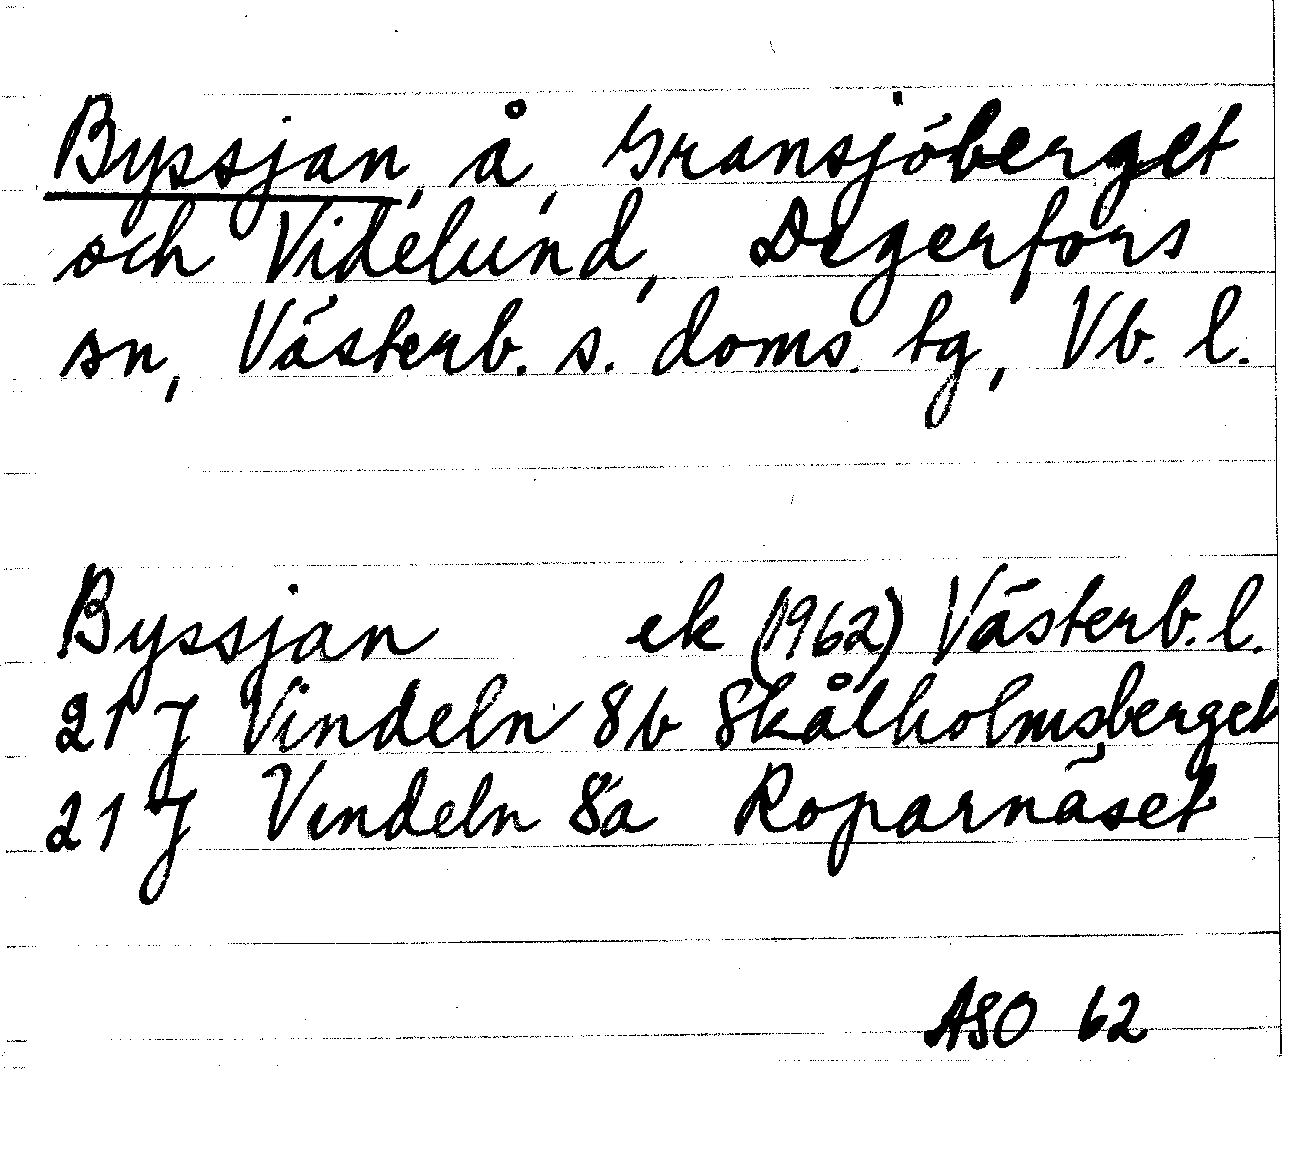 Byssjan, å, Gransjöberget
och Videlund, Degerfors
sn, Västerb. s. doms. tg, Vb. l.
Byssjan ek (1962) Västerb. l.
21 J Vindeln 8b Skålholmsberget
21 J Vindeln 8a Roparnäset
ASO 62